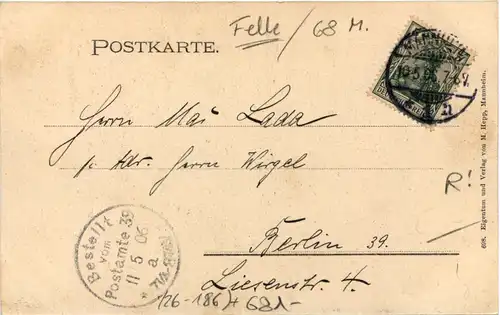 Felle / 68 M.
POSTKARTE.
MANNHEIM
10.5.06. 7-8N.
Herrn Mai Lada
p. Adr. Herrn Wirgel
R!
Berlin 39.
Liesenstr. 4.
Bestellt
vom
Postamte 39
11 5 06
a
608. Eigentum und Verlag von M. Hepp, Mannheim.